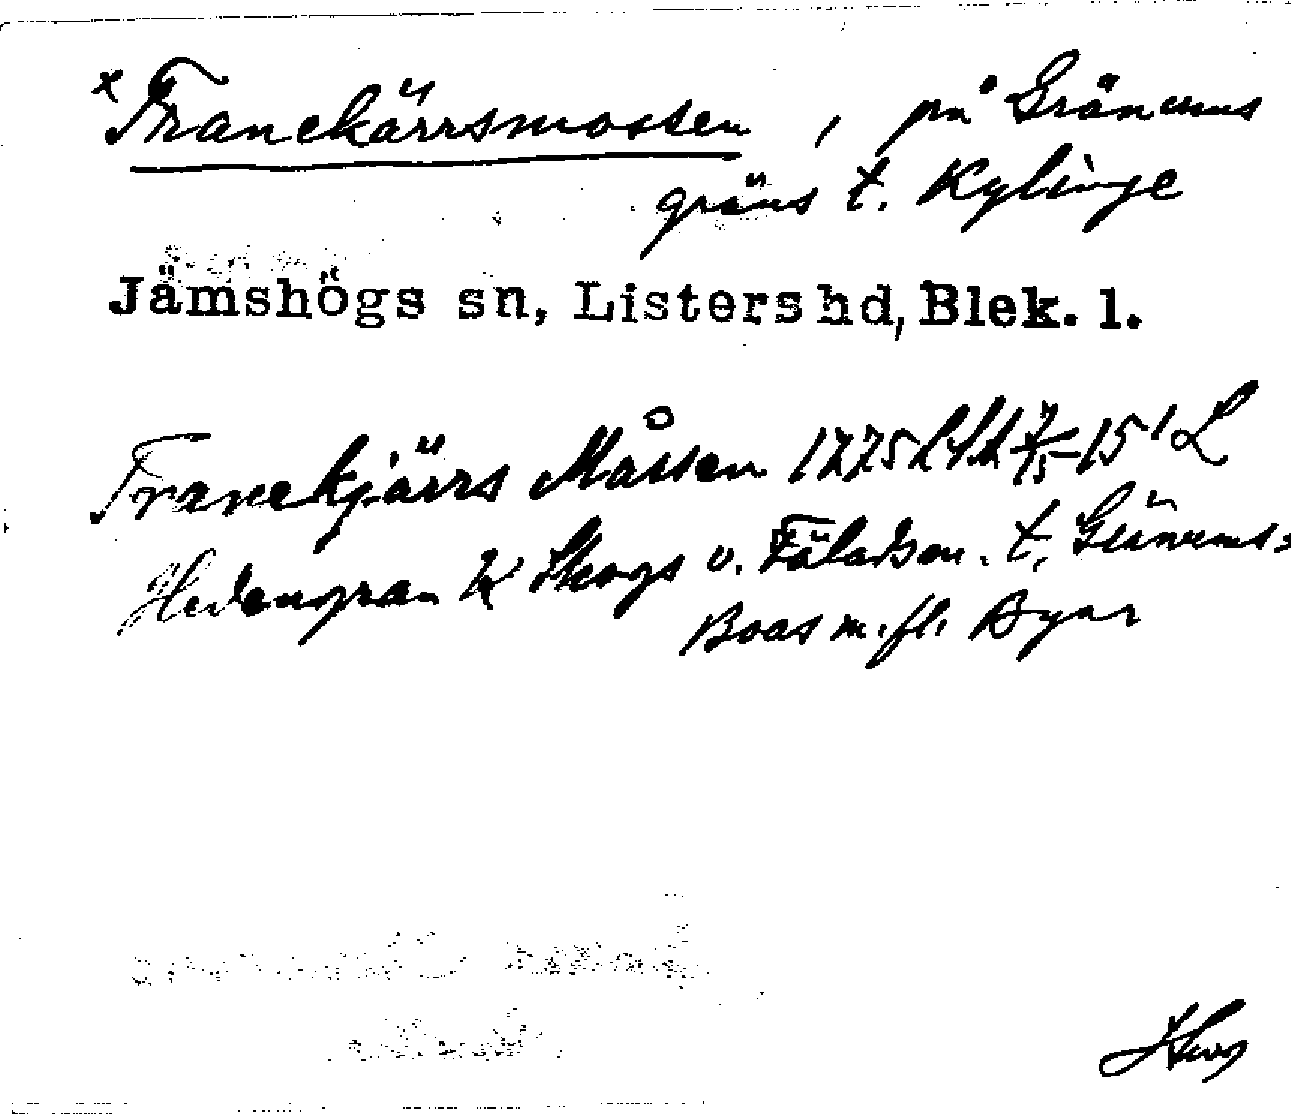 x Franekärrsmossen, på Gränums
gräns t. Kylinge
Jämshögs sn, Listers hd, Blek. l.
Franekjärrs Måssen 1775
Hedengran K Skogs o. Fäladsm. t. Gränums=
Boas m. fl. Byar